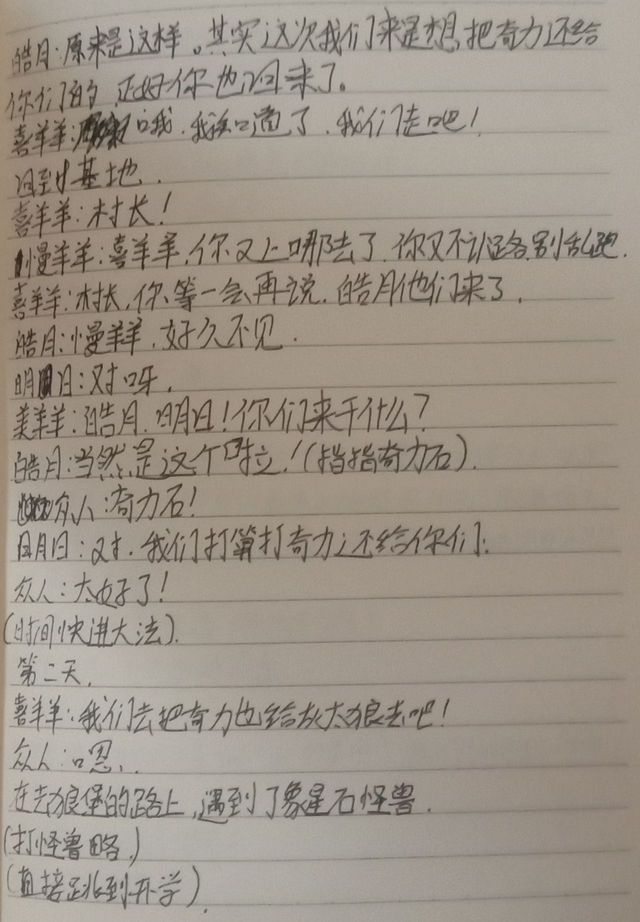 皓月:原来是这样。其实这次我们来是想把奇力还给
你们的 正好你也回来了。
喜羊羊:哦,我知道了,我们走吧!
回到基地.
喜羊羊:村长!
慢羊羊:喜羊羊,你又上哪去了,你又不认路,别乱跑.
喜羊羊:村长,你等一会再说,皓月他们来了.
皓月:慢羊羊,好久不见.
明日:对呀.
美羊羊:皓月,明日!你们来干什么?
皓月:当然是这个啦!(指指奇力石).
众人:奇力石!
明日:对,我们打算打奇力还给你们.
众人:太好了!
(时间快进大法).
第二天.
喜羊羊:我们去把奇力也给灰太狼去吧!
众人:嗯.
在去狼堡的路上,遇到了象星石怪兽.
(打怪兽略)
(直接跳到开学).